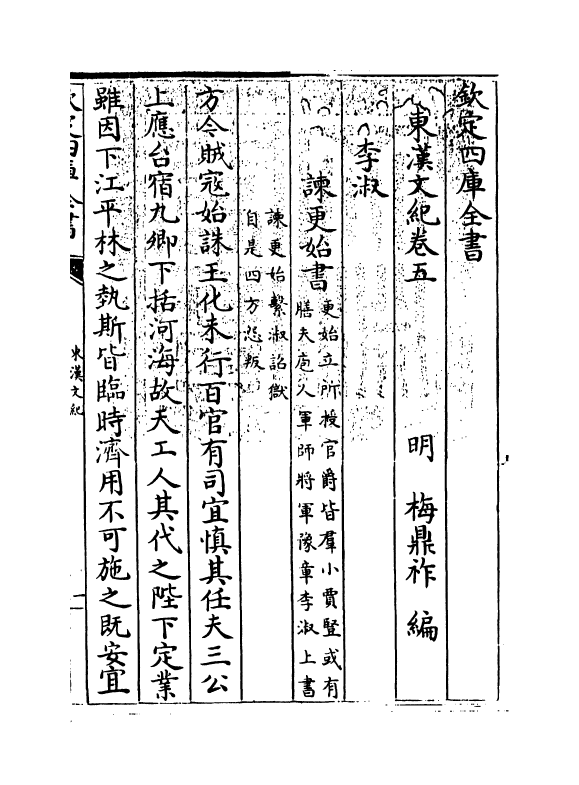 欽定四庫全書
東漢文紀卷五
明 梅鼎祚 編
李淑
諫更始書
更始立所授官爵皆羣小賈豎或有
膳夫庖人軍師將軍豫章李淑上書
諫更始繫淑詔獄
自是四方怨叛
方今賊寇始誅王化未行百官有司宜慎其任夫三公
上應台宿九卿下括河海故天工人其代之陛下定業
雖因下江平林之埶斯皆臨時濟用不可施之既安宜
欽定四庫全書
東漢文紀
一